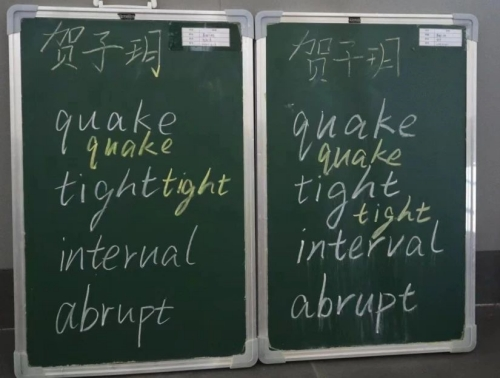 贺子玥
quake
quake
tight tight
interval
abrupt
贺子玥
quake
quake
tight
tight
interval
abrupt